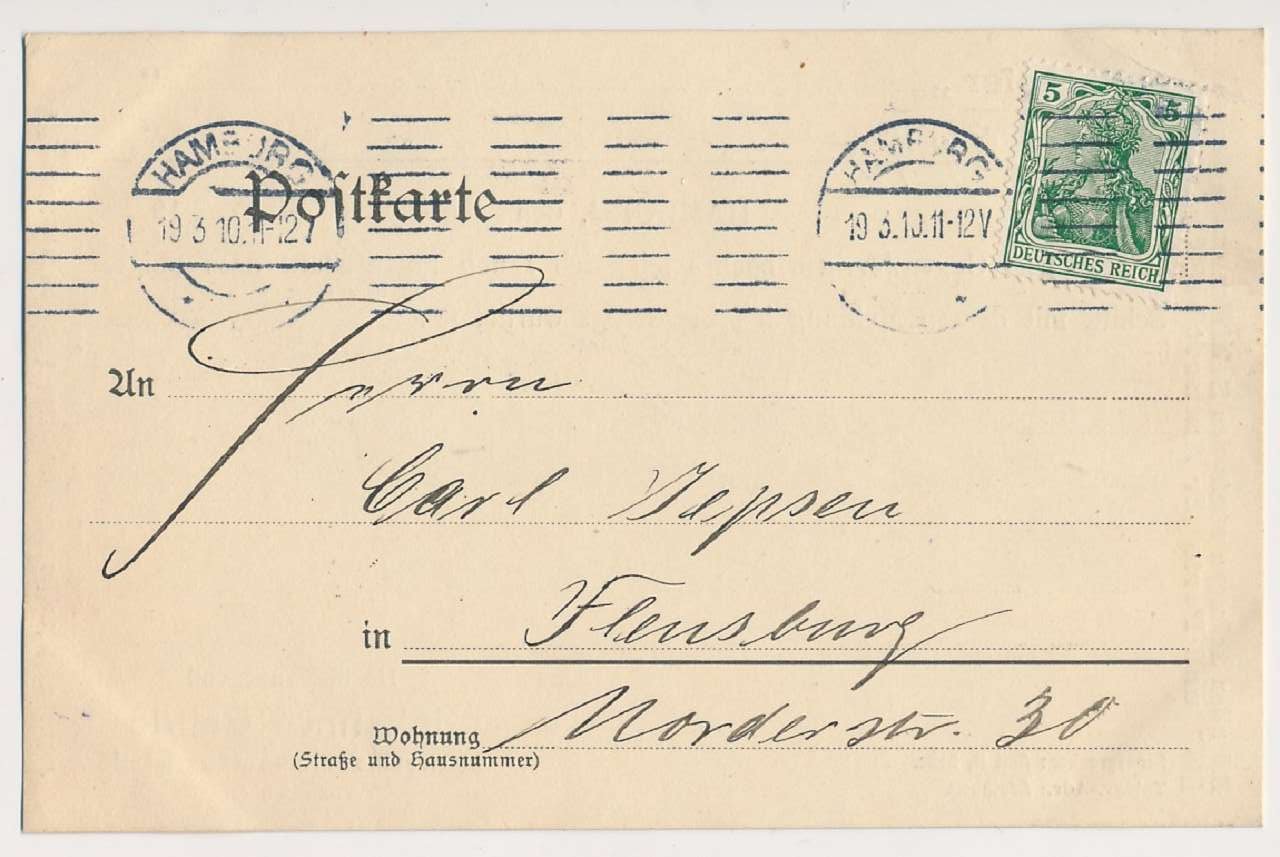 HAMBURG
19 3 10.11-12V
HAMBURG
19.3.10.11-12V
5 5
DEUTSCHES REICH
Postkarte
An Herrn
Carl Jepsen
in Flensburg
Wohnung Norderstr. 30
(Straße und Hausnummer)